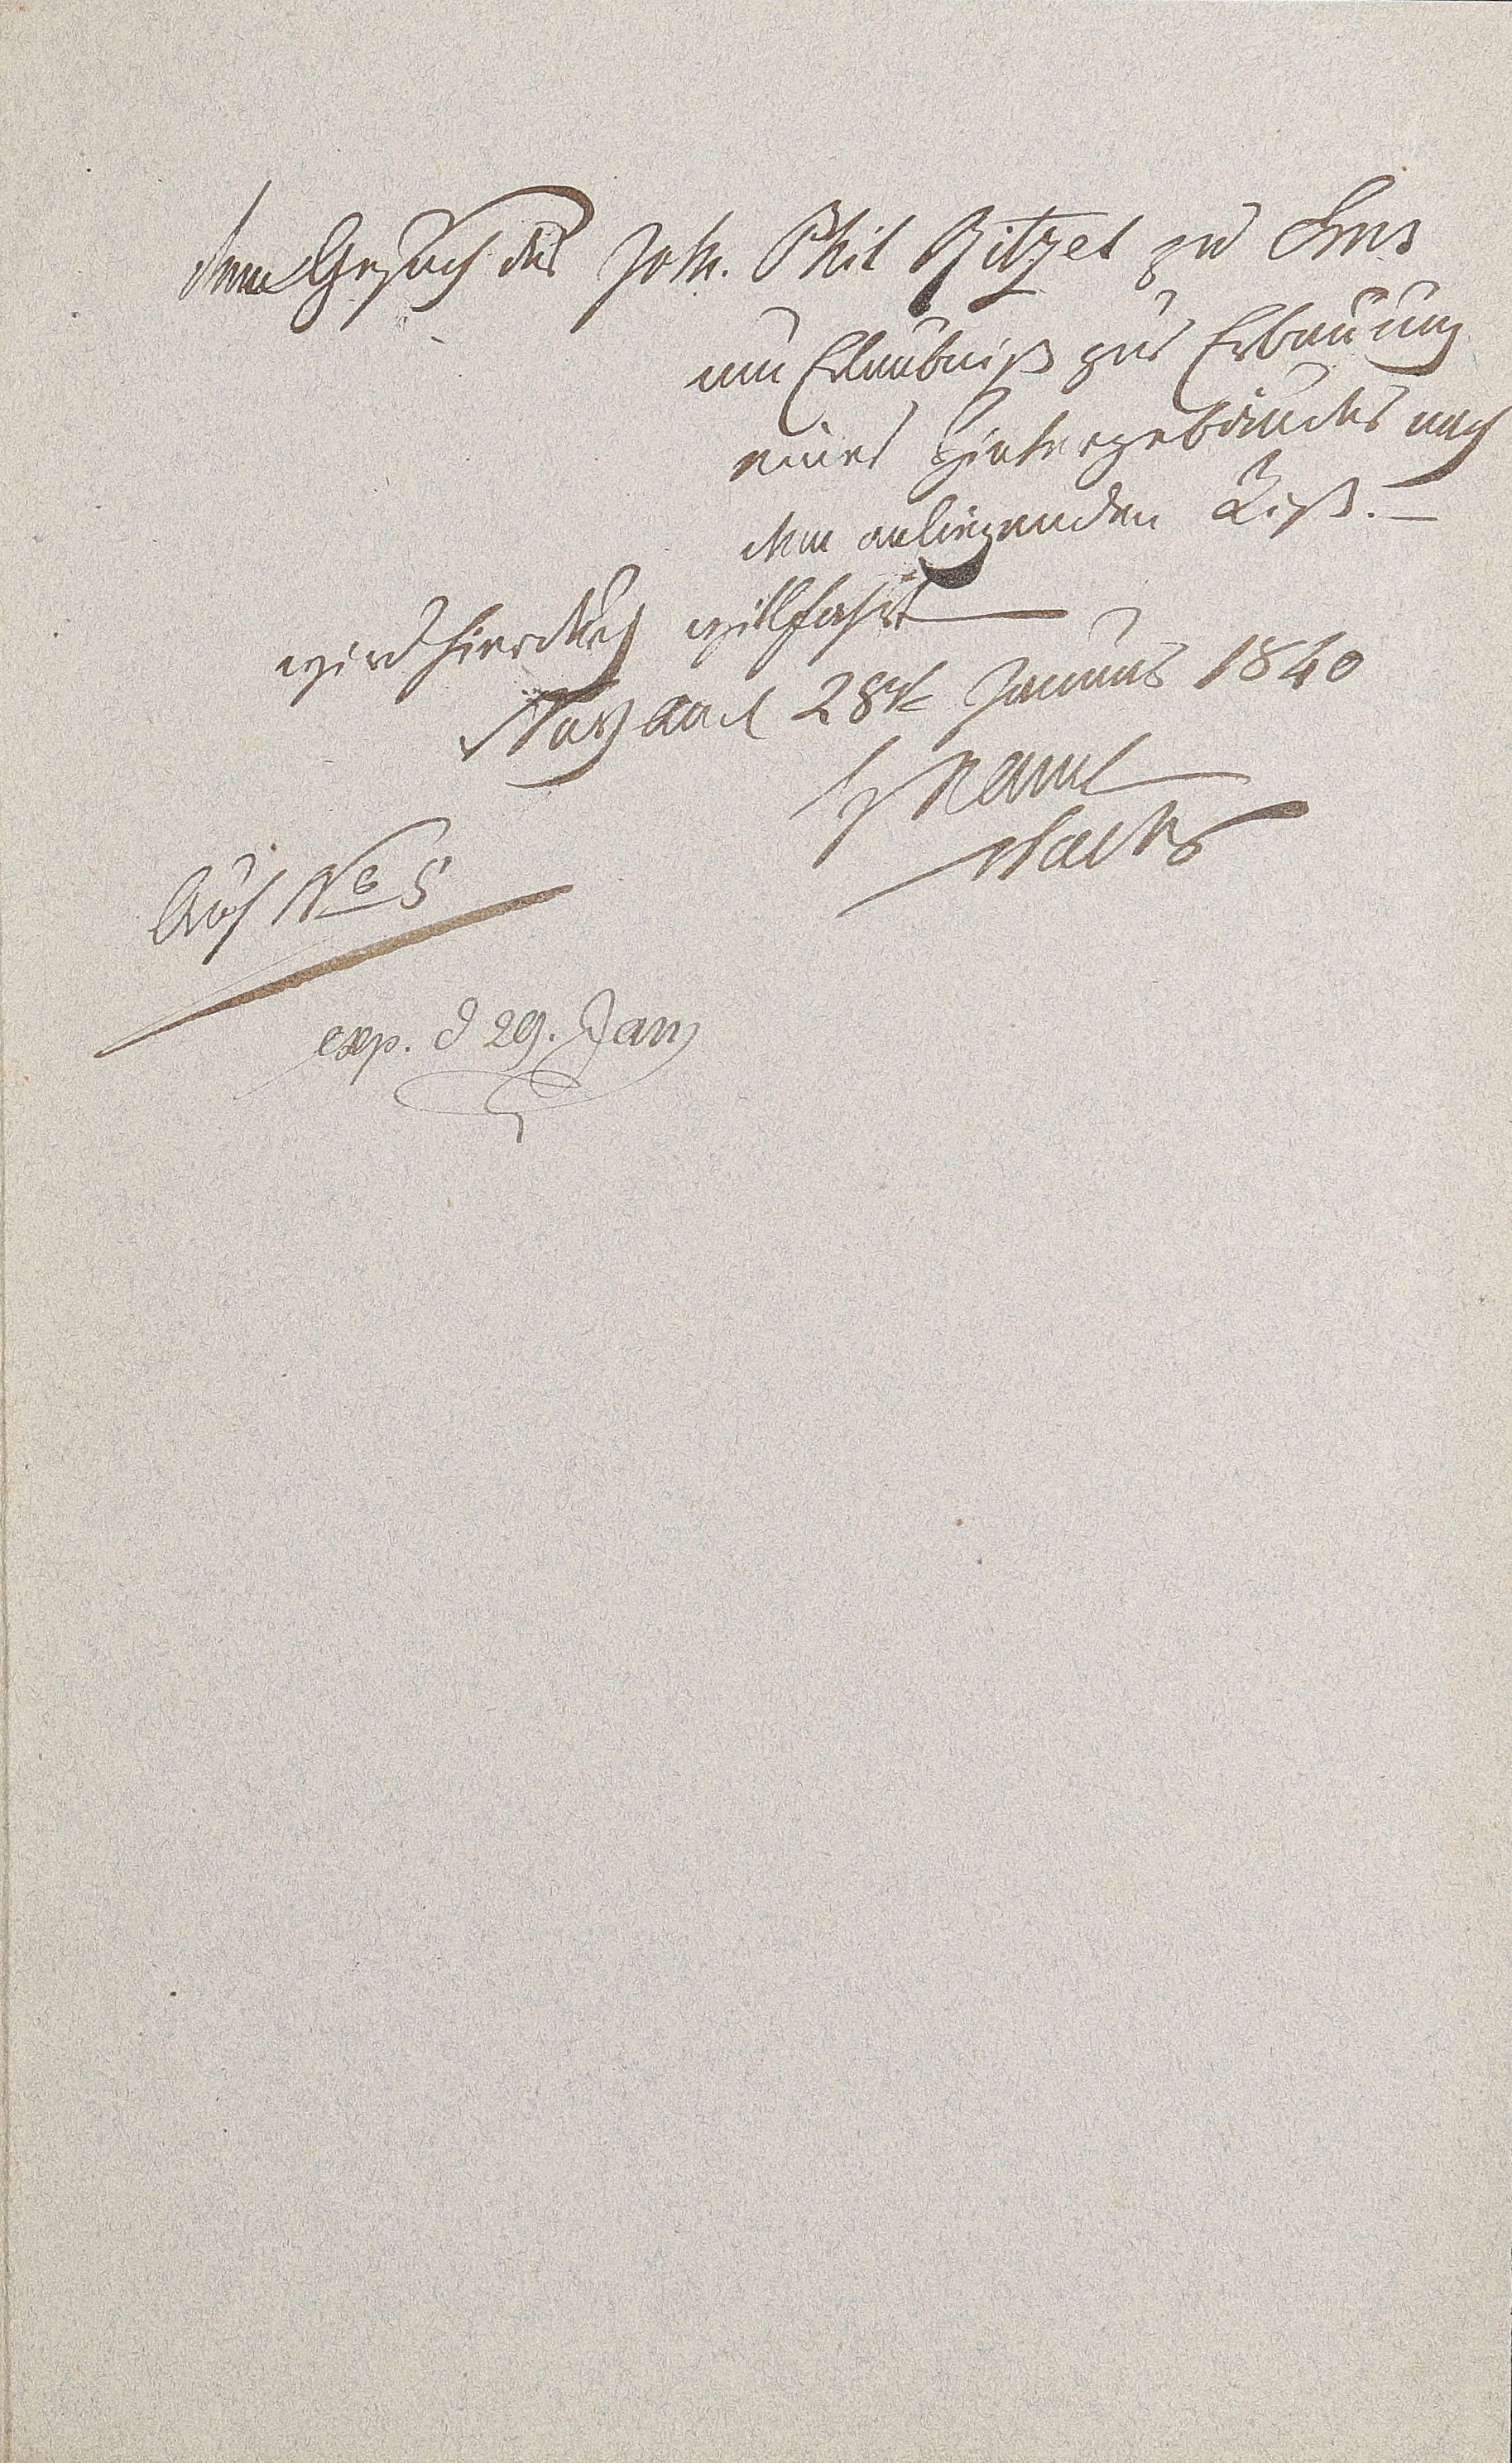 dem Gesuch des Joh. Phil Ritzel zu Ems
um Erlaubniß zur Erbauung
eines Hintergebäudes nach
dem anliegenden Riß. —
wird hierdurch willfahrt —
28ten Januar 1840
Auf No 5
exp. d 29. Jan